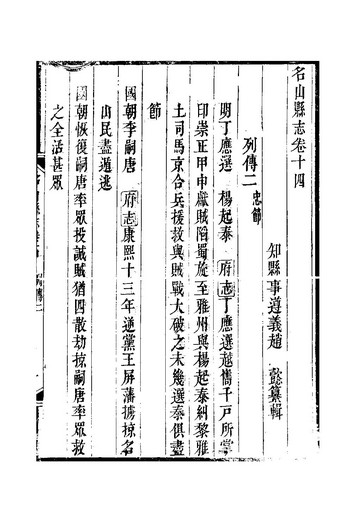 名山縣志卷十四
知縣事遵義趙懿纂輯
列傳二忠節
明丁應選 楊起泰 府志丁應選越嶲千戸所掌
印崇正甲申獻賊陷蜀旋至雅州與楊起泰糾黎雅
土司馬京合兵援救與賊戰大破之未幾選泰俱盡
節
國朝李嗣唐 府志康熙十三年逆黨王屏藩擄掠名
山民盡逃
國朝恢復嗣唐率眾投誠賊猶四散劫掠嗣唐率眾救
之全活甚眾